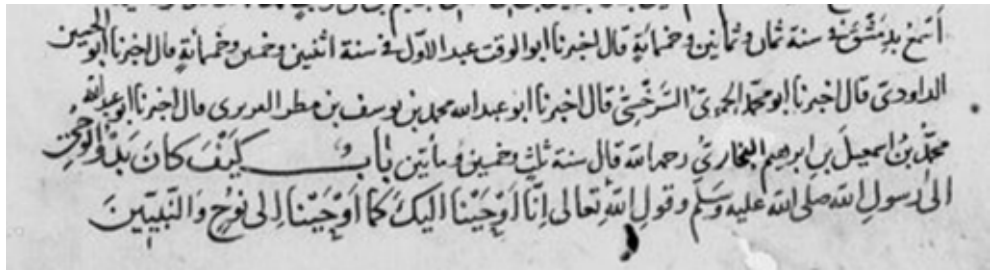 أسمع بدمشق في سنة ثمان وثمانين وخمسمائة قال اخبرنا ابو الوقت عبد الاوّل في سنة اثنين وخمسين وخمسمائة قال اخبرنا ابو الحسين
الداودي قال اخبرنا ابو محمد الحموي السَّرَخْسِيّ قال اخبرنا ابو عبد الله محمد بن يوسف بن مطر الفربري قال اخبرنا ابو عبد الله
محمّد بْن اسمعيل بن ابرهيم البخاريّ رحمه الله قال سنة ثلث وخمسين ومأتين بَابُ كَيْفَ كَانَ بَدْؤُ الْوَحْيِ
الىٰ رسولِ الله صلى الله عليه وَسَلَّم وقولِ اللهِ تعالى اِنَّا اَوْحَيْنا اليكَ كَمَا اَوْحَيْنا اِلى نُوحٍ وَالنَّبِيّينَ